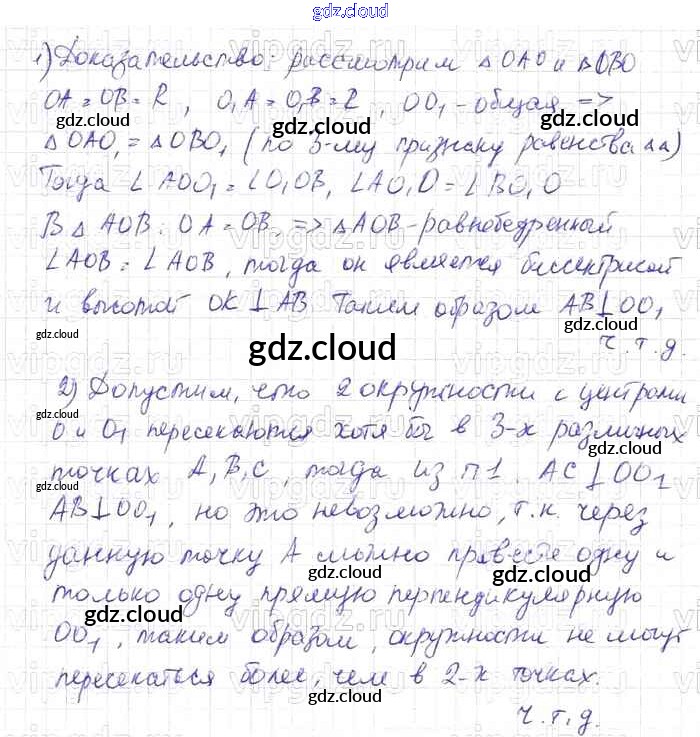 gdz.cloud
1) Доказательство: рассмотрим △OAO и △OBO
OA = OB = R, O₁A = O₁B = R, OO₁ - общая =>
gdz.cloud gdz.cloud gdz.cloud
△OAO₁ = △OBO₁ (по 3-му признаку равенства △△)
Тогда ∠AOO₁ = ∠O₁OB, ∠AO₁O = ∠BO₁O
В △AOB: OA = OB, => △AOB - равнобедренный
gdz.cloud gdz.cloud gdz.cloud
∠AOB = ∠AOB, тогда он является биссектрисой
и высотой OK ⊥ AB. Таким образом AB ⊥ OO₁
gdz.cloud gdz.cloud
gdz.cloud
ч.т.д.
2) Допустим, что 2 окружности с центрами
gdz.cloud
O и O₁ пересекаются хотя бы в 3-х различных
точках A, B, C, тогда из п1 AC ⊥ OO₁
gdz.cloud
AB ⊥ OO₁, но это невозможно, т.к. через
данную точку A можно провести одну и
gdz.cloud gdz.cloud
только одну прямую перпендикулярную
gdz.cloud
OO₁, таким образом, окружности не могут
gdz.cloud
пересекаться более, чем в 2-х точках.
gdz.cloud
ч.т.д.